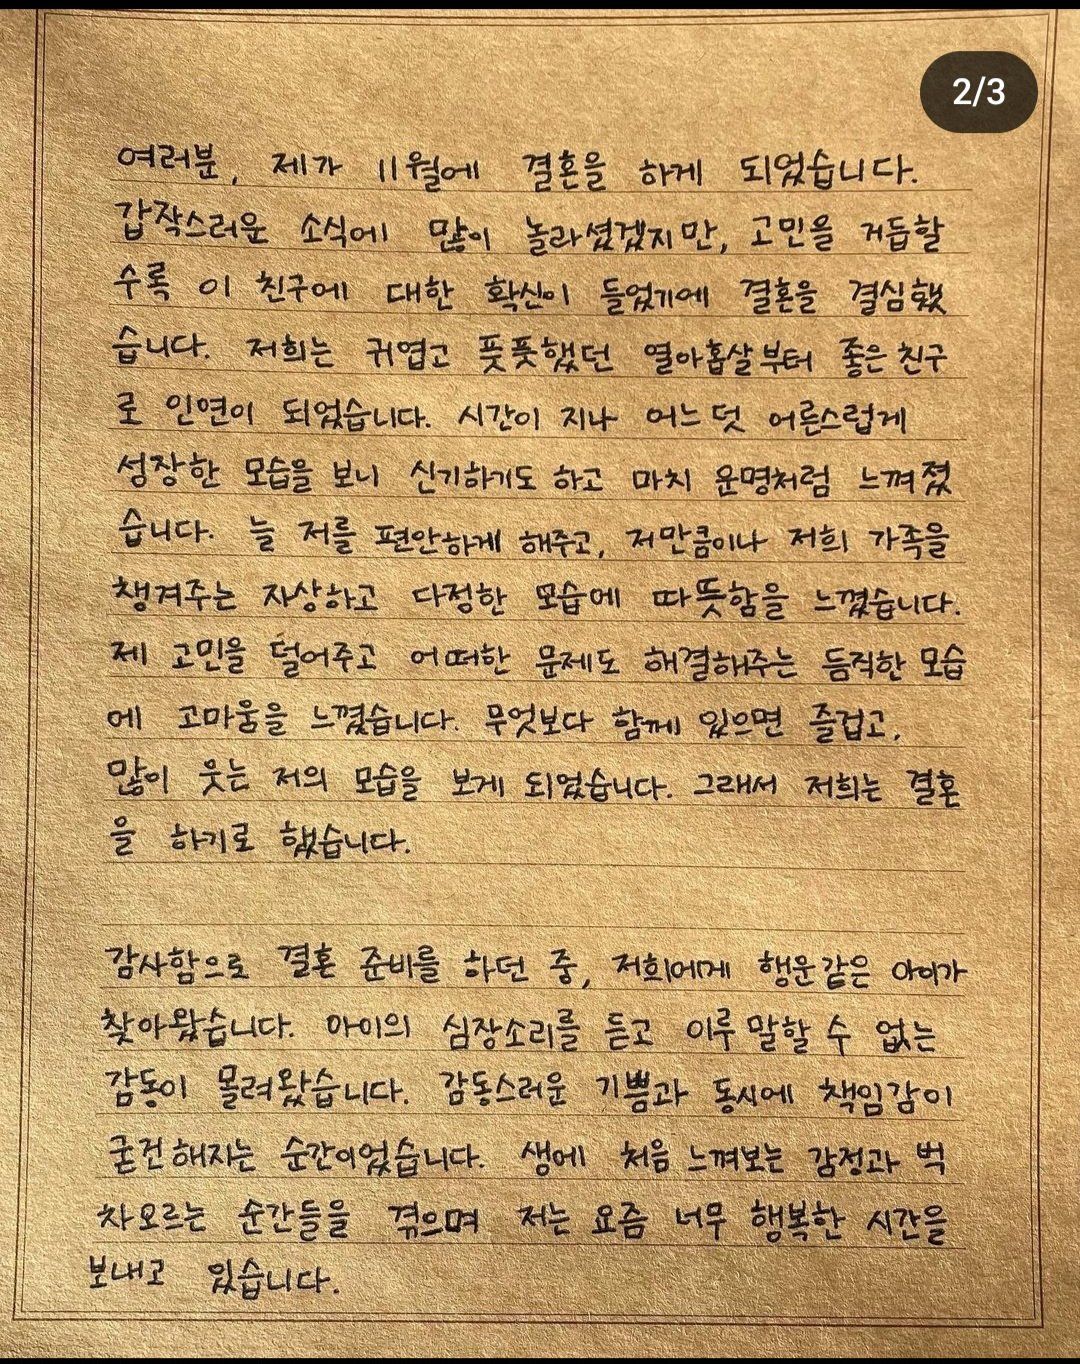 2/3
여러분, 제가 11월에 결혼을 하게 되었습니다.
갑작스러운 소식에 많이 놀라셨겠지만, 고민을 거듭할
수록 이 친구에 대한 확신이 들었기에 결혼을 결심했
습니다. 저희는 귀엽고 풋풋했던 열아홉살부터 좋은 친구
로 인연이 되었습니다. 시간이 지나 어느덧 어른스럽게
성장한 모습을 보니 신기하기도 하고 마치 운명처럼 느껴졌
습니다. 늘 저를 편안하게 해주고, 저만큼이나 저희 가족을
챙겨주는 자상하고 다정한 모습에 따뜻함을 느꼈습니다.
제 고민을 덜어주고 어떠한 문제도 해결해주는 듬직한 모습
에 고마움을 느꼈습니다. 무엇보다 함께 있으면 즐겁고,
많이 웃는 저의 모습을 보게 되었습니다. 그래서 저희는 결혼
을 하기로 했습니다.
감사함으로 결혼 준비를 하던 중, 저희에게 행운같은 아이가
찾아왔습니다. 아이의 심장소리를 듣고 이루 말할 수 없는
감동이 몰려왔습니다. 감동스러운 기쁨과 동시에 책임감이
굳건해지는 순간이었습니다. 생에 처음 느껴보는 감정과 벅
차오르는 순간들을 겪으며 저는 요즘 너무 행복한 시간을
보내고 있습니다.